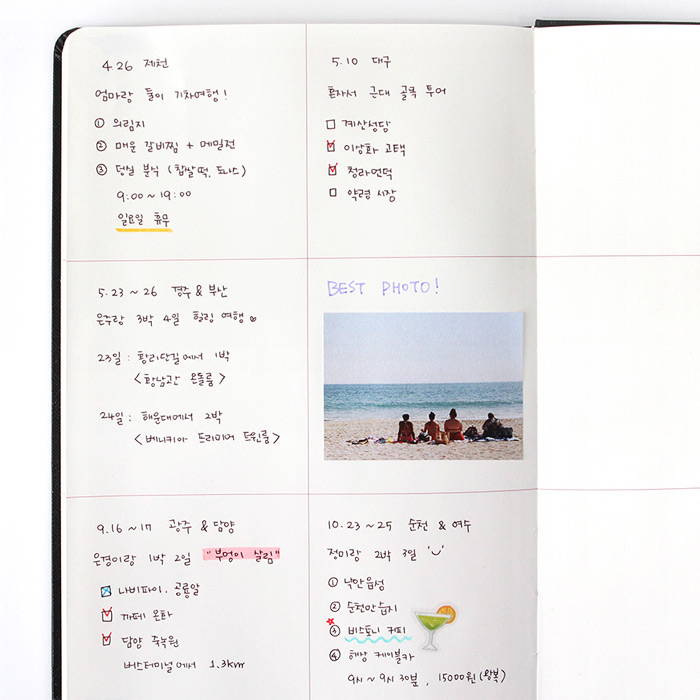 4.26 제천
엄마랑 둘이 기차여행!
① 의림지
② 매운 갈비찜 + 메밀전
③ 덩실 분식 (찹쌀떡, 도나스)
9:00 ~ 19:00
일요일 휴무
5.10 대구
혼자서 근대 골목 투어
계산성당
이상화 고택
청라언덕
약령시장
5.23 ~ 26 경주 & 부산
은주랑 3박 4일 힐링 여행
23일 : 황리단길에서 1박
<황남관 온돌룸>
24일 : 해운대에서 2박
<베니키아 프리미어 트윈룸>
BEST PHOTO!
9.16 ~ 17 광주 & 담양
은경이랑 1박 2일 "부엉이 살림"
나비파이, 공룡알
까페 온타
담양 죽녹원
버스터미널에서 1.3km
10.23 ~ 25 순천 & 여수
정미랑 2박 3일
① 낙안읍성
② 순천만습지
③ 비스토니 커피
④ 해상 케이블카
9시 ~ 9시 30분, 15000원 (왕복)